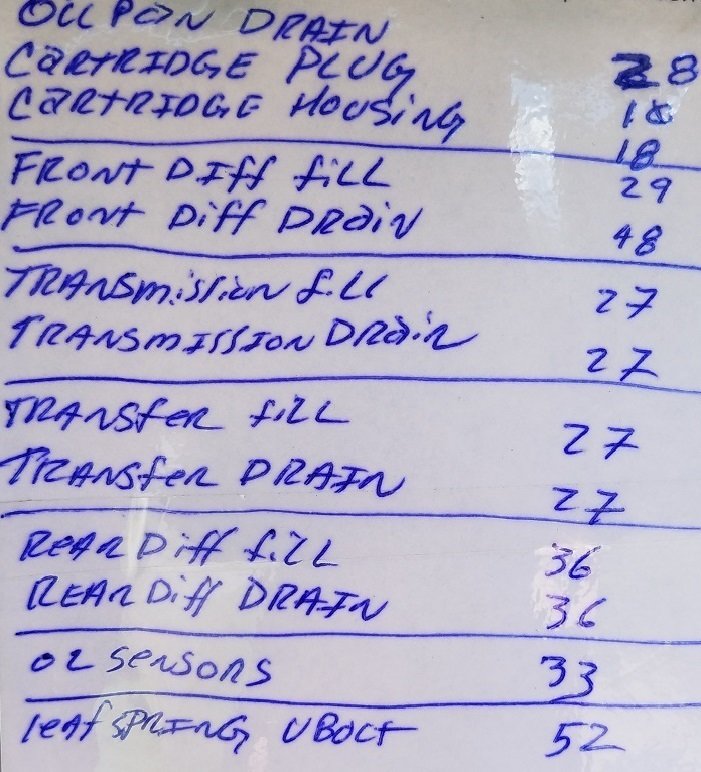 OIL PAN DRAIN 28
CARTRIDGE PLUG 18
CARTRIDGE HOUSING 18
FRONT DIFF fill 29
FRONT Diff DRAIN 48
TRANSmission fill 27
TRANSMISSION DRAIN 27
TRANSfER fill 27
TRANSfER DRAIN 27
REAR Diff fill 36
REAR Diff DRAIN 36
O2 SENSORS 33
leaf SPRING UBOLt 52